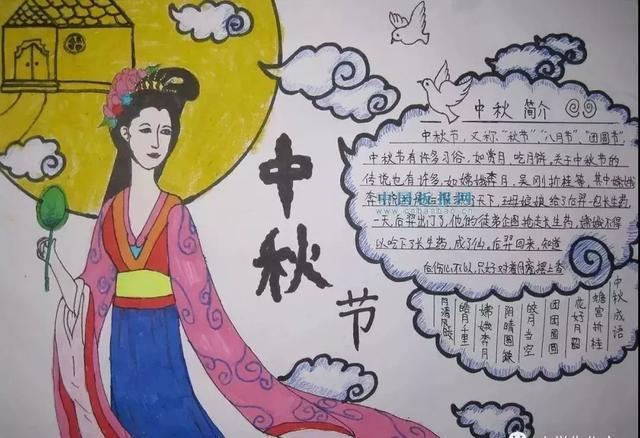 中秋节
中秋简介
中秋节，又称"秋节""八月节"，"团圆节"，
中秋节有许多习俗，如赏月，吃月饼，关于中秋节的
传说也有许多，如嫦娥奔月，吴刚折桂等，其中嫦娥
天下，王母娘娘给了后羿一包长生药，
一天后羿出门了，他的徒弟企图抢走长生药，嫦娥不得
以吟下了长生药，成了仙，后羿回来，知道
后伤心不以，只好对着月
中国板报网
中秋成语
蟾宫折桂
花好月圆
团团圆圆
皎月当空
阴晴圆缺
嫦娥奔月
皓月千里
月清风